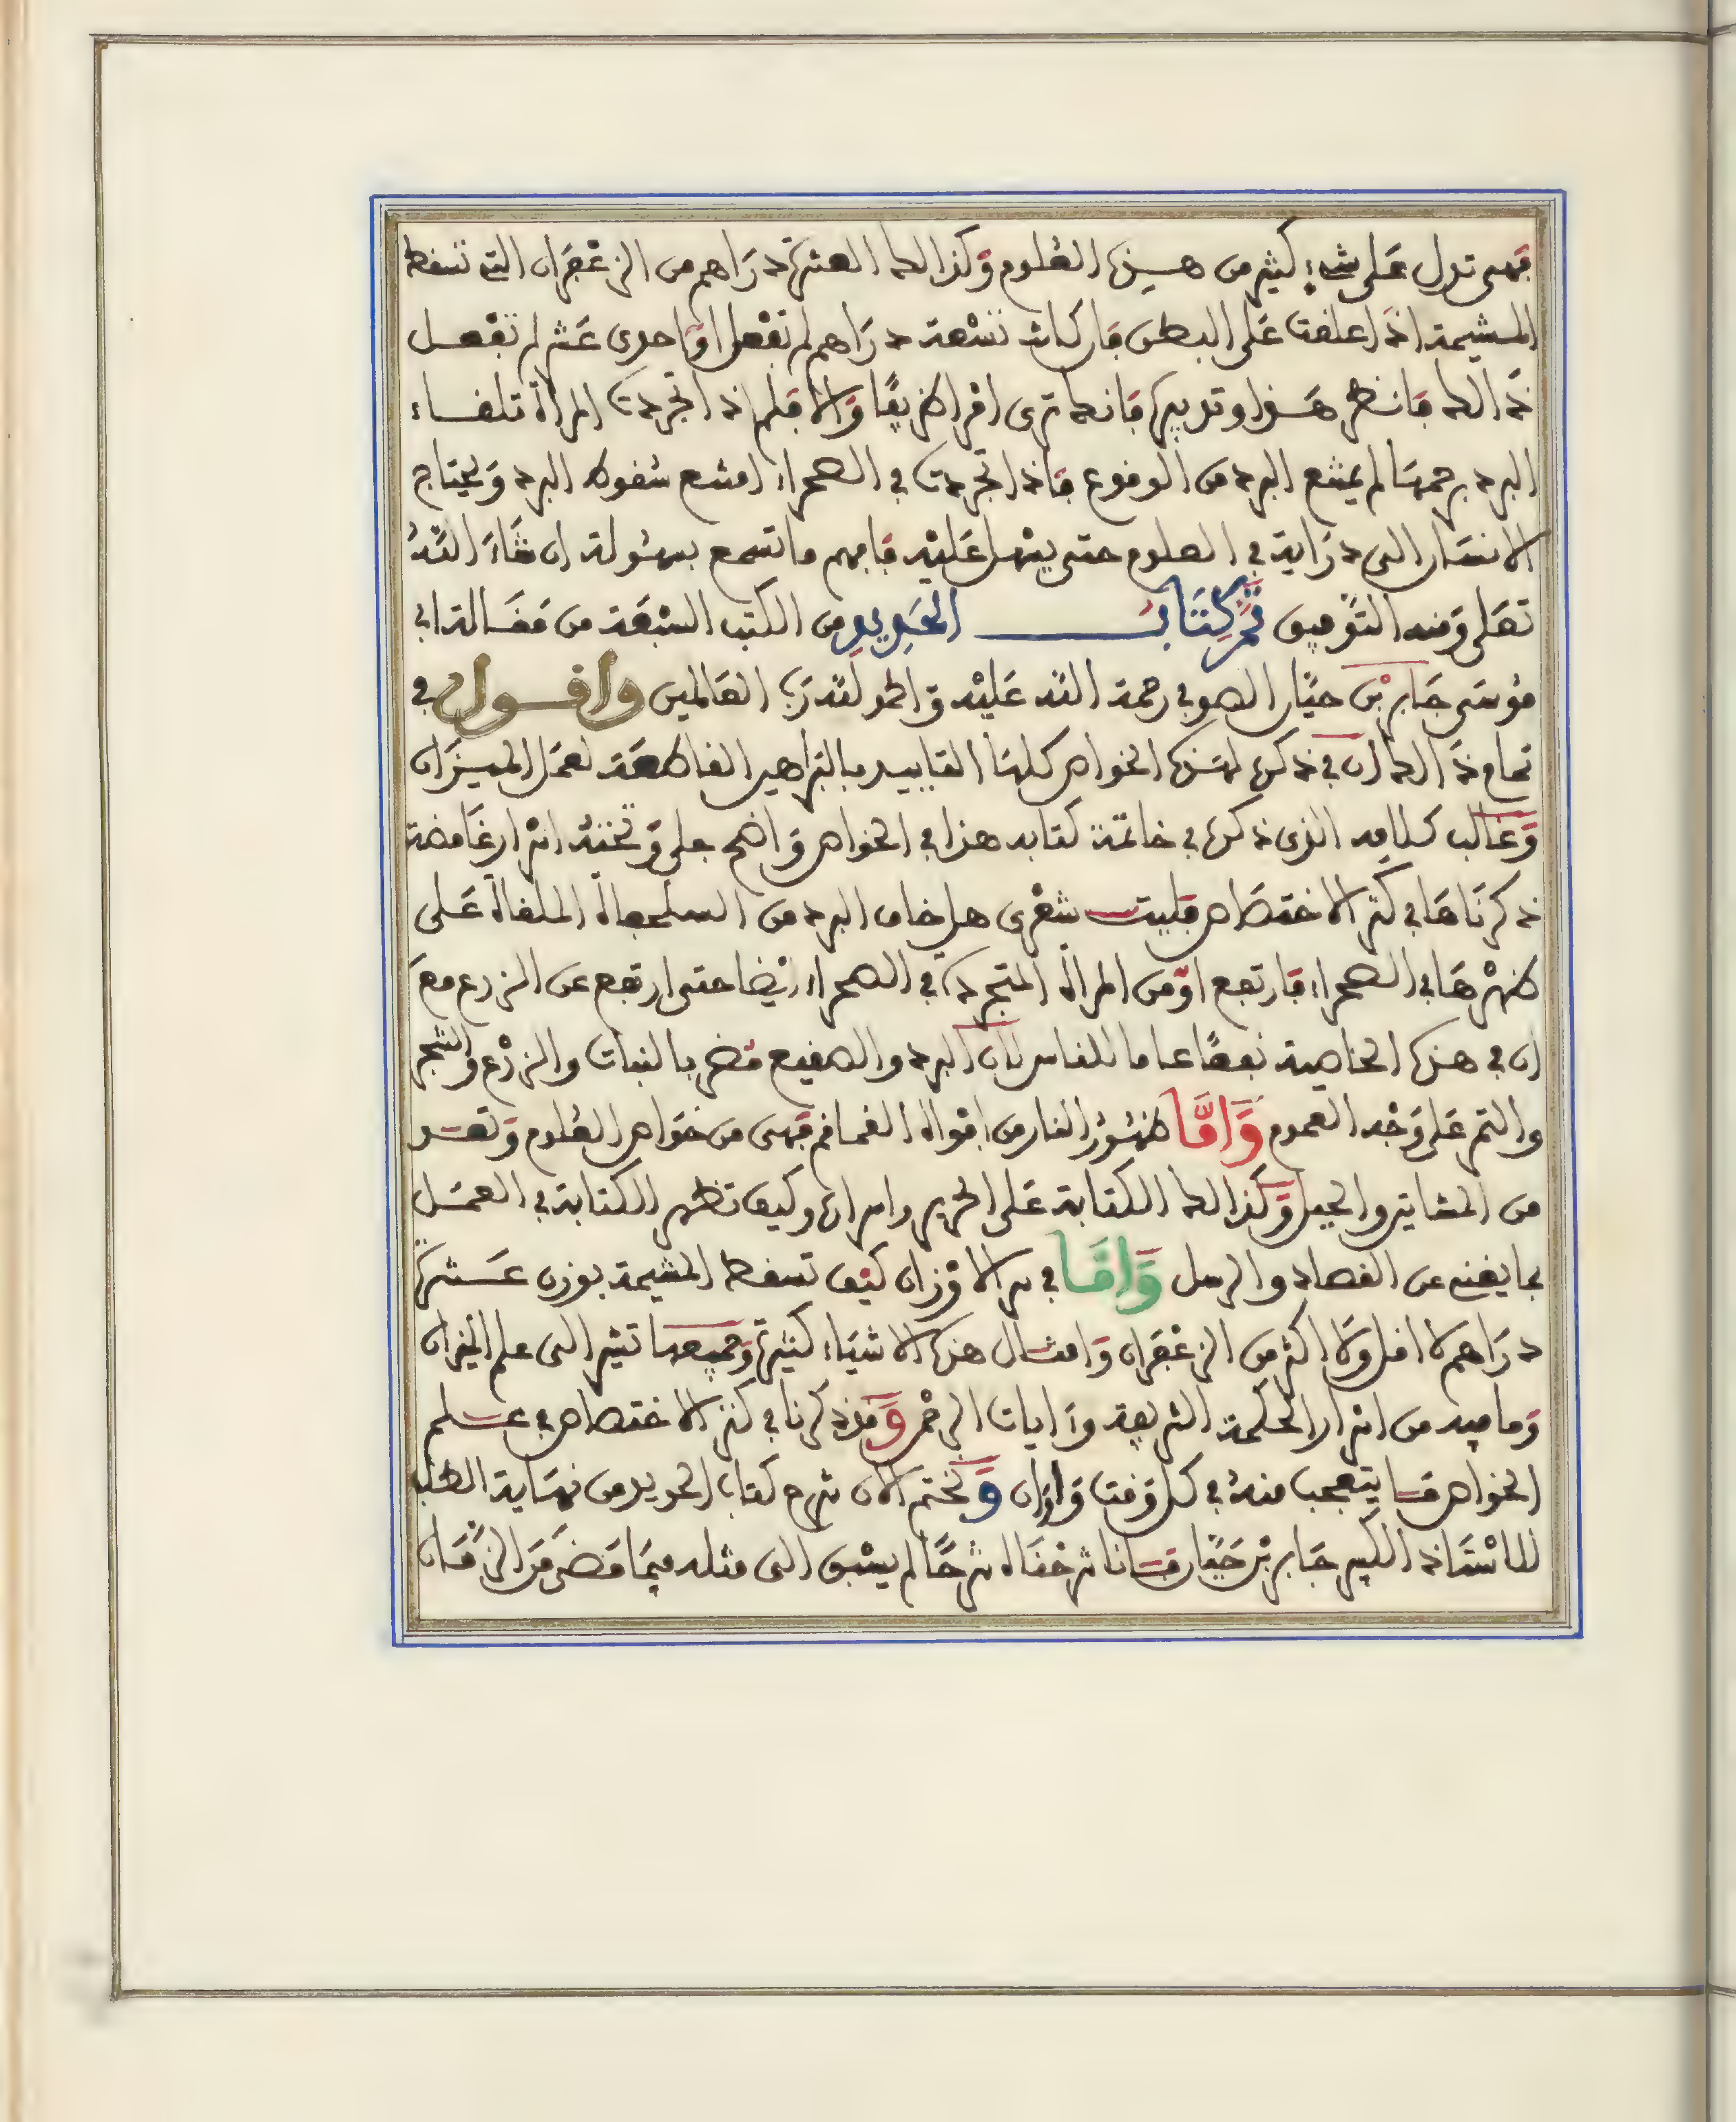 فهى تدل على شىء كثير من هذه العلوم وكذالك العشرة دراهم من الزعفران التى تسقط
المشيمة اذا علقت على البطن فان كانت تسعة دراهم لم تفعل او احدى عشر لم تفعل
ذالك فانظر هذا وتدبره فانك ترى امرا ظريفا والا فلم اذا تجردت المراة تلقاء
البرد برحمها لم يمتنع البرد من الوقوع فاذا تجردت فى الصحراء امتنع سقوط البرد ويحتاج
الانسان الى دراية فى العلوم حتى يسهل عليه فافهم ما تسمع بسهولة ان شاء الله
تعلى ومنه التوفيق تم كتاب الحديد من الكتب السبعة من مقالة ابى
موسى جابر بن حيان الصوفى رحمة الله عليه والحمد لله رب العالمين واقول فى
تمام ذالك ان فى ذكره لهذه الخواص كلها التاييد بالبراهين القاطعة لعمل الميزان
وغالب كلامه الذى ذكره فى خاتمة كتابه هذا فى الخواص واضح جلى وتحته اسرار غامضة
ذكرناها فى كنز الاختصاص فليت شعرى هل خاف البرد من السلحفاة الملقاة على
ظهرها فى الصحراء فارتفع او من المراة المتجردة فى الصحراء ايضا حتى ارتفع عن الزرع مع
ان فى هذه الخاصية نفعا عاما للناس لان البرد والصقيع مضر بالنبات والزرع والشجر
والثمر على وجه العموم واما ظهور النار من افواه القماقم فهى من خواص العلوم وتعد
من المخاتير والحيل وكذالك الكتابة على الحرير واسراره وكيف تظهر الكتابة فى العمل
بما يغنى عن القصاد والرسل واما فى سر الاوزان كيف تسقط المشيمة بوزن عشرة
دراهم لا اقل ولا اكثر من الزعفران وامثال هذه الاشياء كثيرة وجميعها تشير الى علم الميزان
وما فيه من اسرار الحكمة الشريفة وءايات الرحمن وقد ذكرنا فى كنز الاختصاص فى علم
الخواص ما يتعجب منه فى كل وقت واوان ونختم الان شرح كتاب الحديد من نهاية الطلب
للاستاذ الكبير جابر بن حيان فانا شرحناه شرحا لم يسبق الى مثله فيما مضى من الزمان